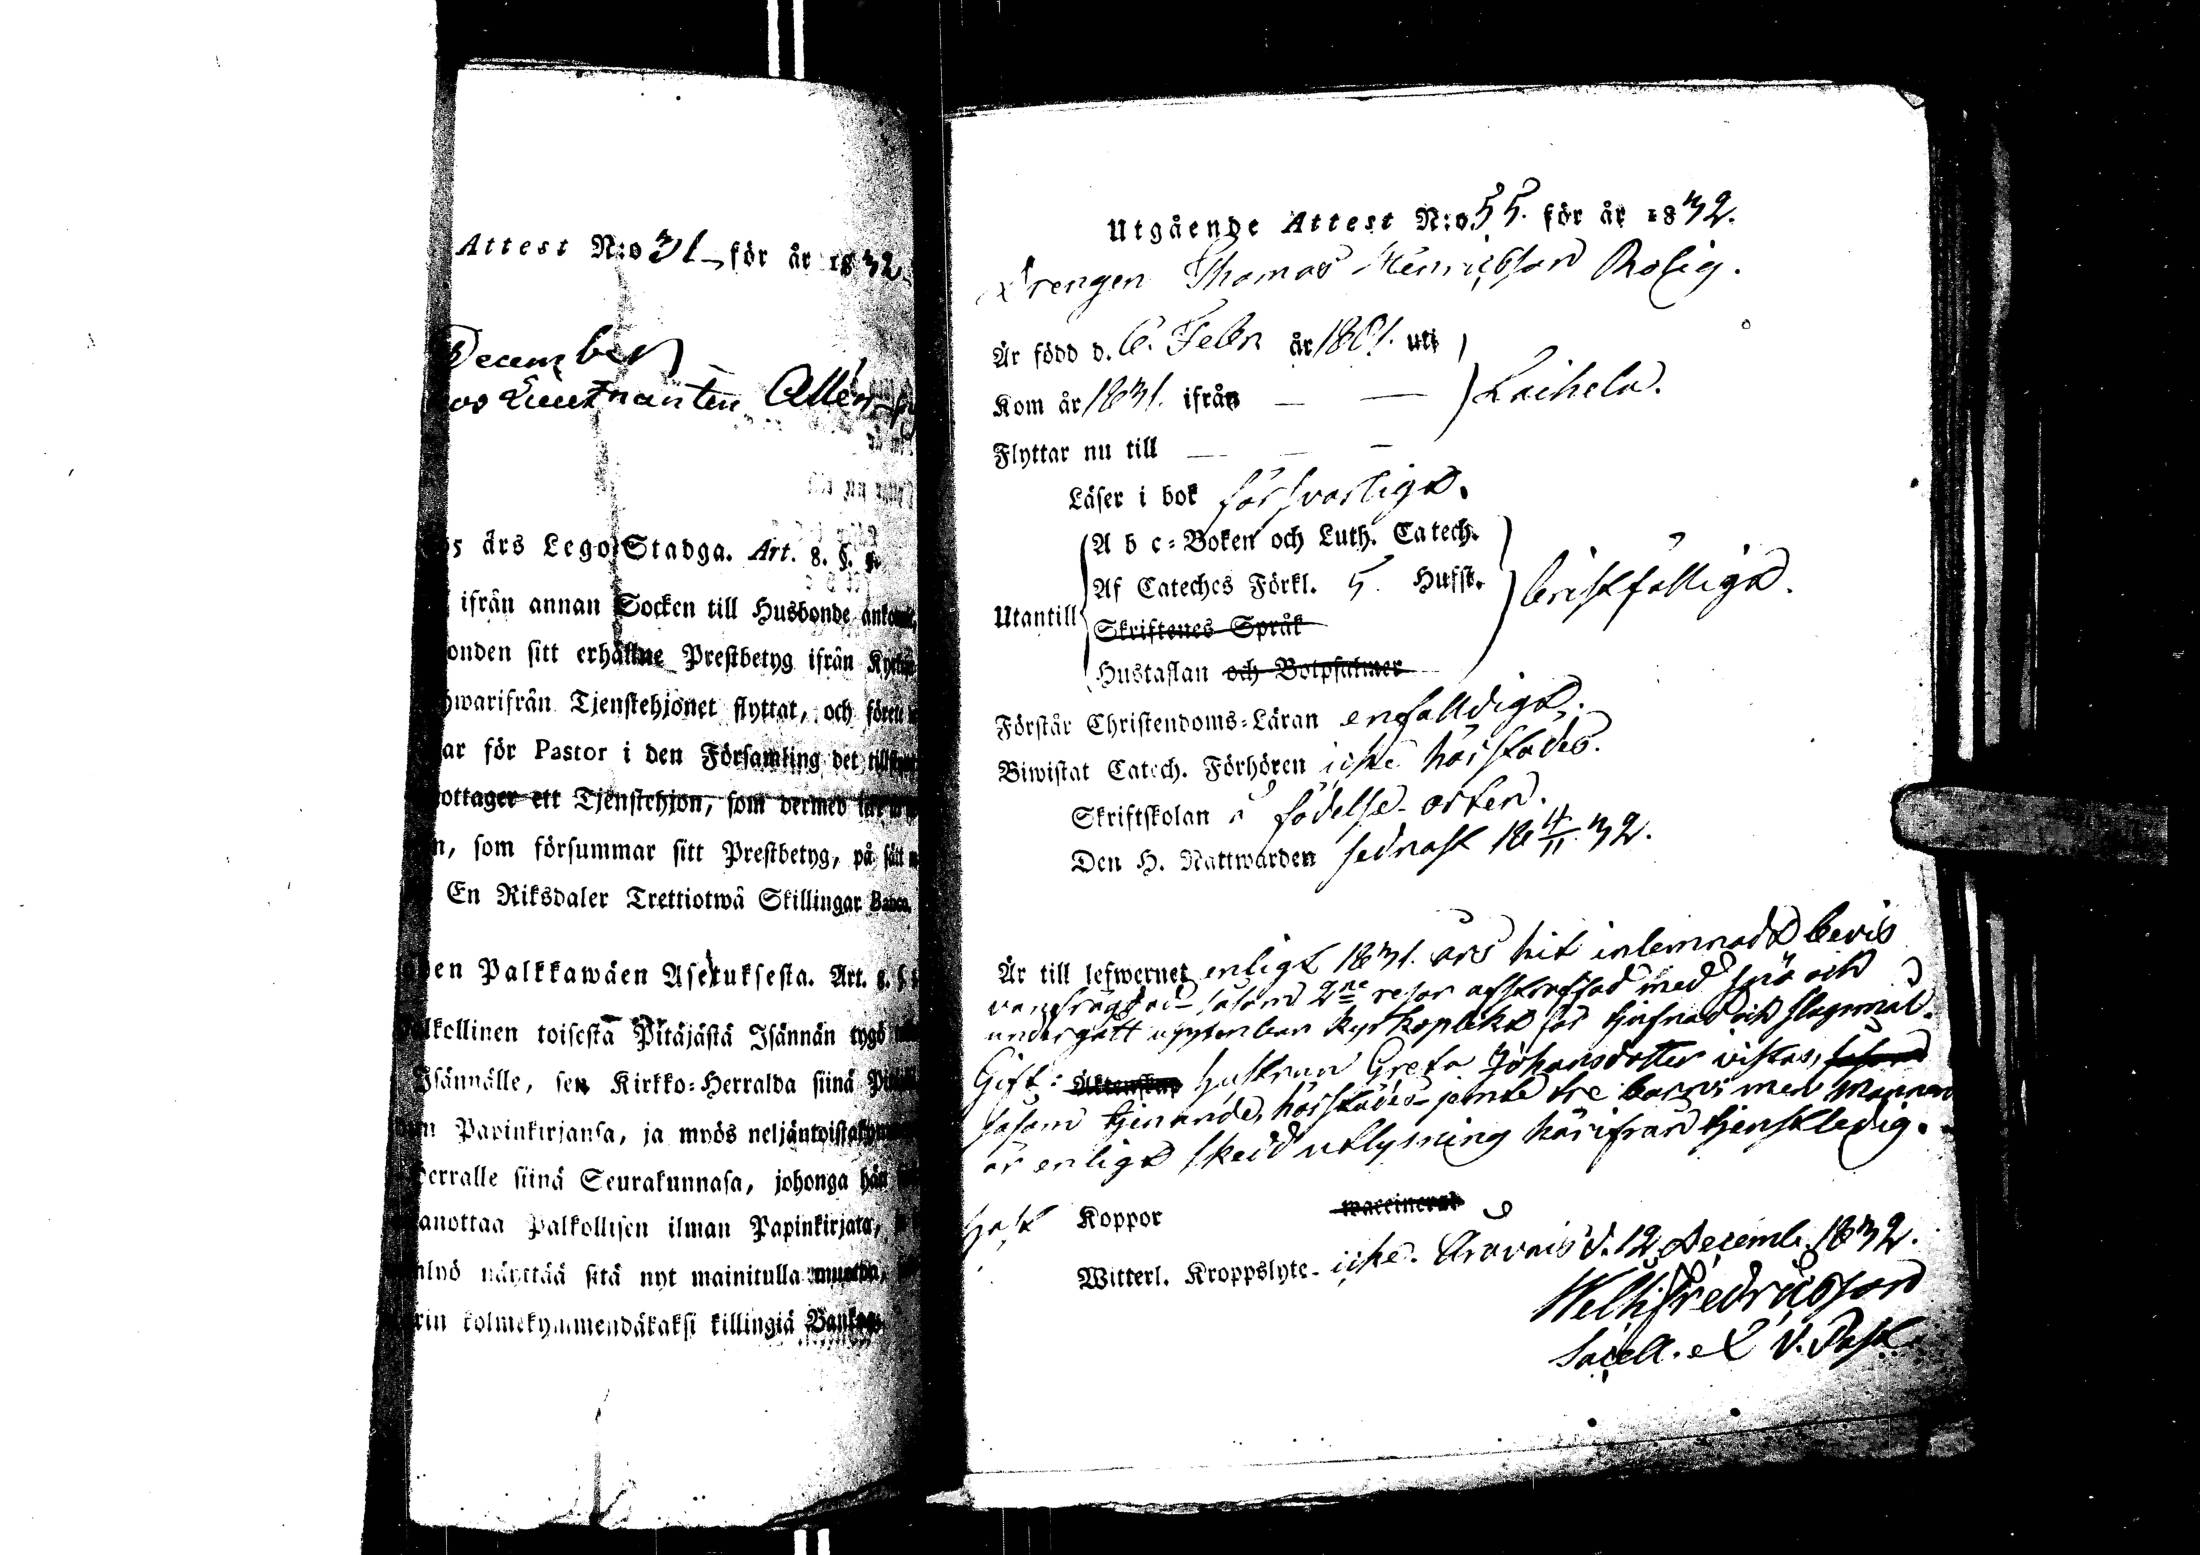 Attest N:o 31 för år 1832.
December
os Lieutnanten Allén
5 års Lego Stadga. Art. 8. §. 9.
ifrån annan Socken till Husbonde
onden sitt erhållne Prestbetyg ifrån
hwarifrån Tjenstehjonet flyttat, och
ar för Pastor i den Församling det
ottager ett Tjenstehjon, som dermed
n, som försummar sitt Prestbetyg, på sätt
En Riksdaler Trettiotwå Skillingar Banco.
en Palkkawäen Asetuksesta. Art. 8. §.
lkollinen toisesta Pitäjästä Isännän tygö
Isännälle, sen Kirkko-Herralda siinä
Papinkirjansa, ja myös neljäntoistakymmen
Herralle siinä Seurakunnasa, johonga hän
anottaa Palkollisen ilman Papinkirjata,
näyttää sitä nyt mainitulla muotoa,
rin kolmekymmendäkaksi killingiä Bankos
Utgående Attest N:o 55. för år 1832.
Drengen Thomas Henricsson Rolig.
Är född d. 6. Febr år 1801. uti
Kom år 1831. ifrån — — Laihela.
Flyttar nu till — — —
Läser i bok försvarligt.
A b c-Boken och Luth. Catech.
Af Cateches Förkl. 5. Hufst.
Utantill bristfälligt.
Skriftenes Språk
Hustaflan och Botpsalmer
Förstår Christendoms-Läran enfaldigt.
Biwistat Catech. Förhören icke härstädes.
Skriftskolan å födelse-orten.
Den H. Nattwarden sednast 18 4/11 32.
Är till lefwernet enligt 1831. års hit inlemnadt bevis
vanfrägdad såsom 2ne resor afstraffad med spö och
undergått uppenbar kyrkoplikt för tjufnad och slagsmål.
Gift: Äktenskap hustrun Greta Johansdotter vistas, såsom
såsom tjenande, härstädes jemte tre barn; men mannen
är enligt skedd utlysning härifrån tjenstledig.
Haft Koppor waccinerad
Witterl. Kroppslyte icke. Oravais d. 12 Decemb. 1832.
Welh. Fredricsson
Sacell. et V. Past.